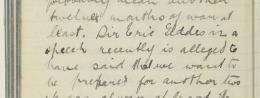 probably mean another
twelve months of war at
least. Sir Eric Geddes in a
speech recently is alleged to
have said that we want to
be prepared for another two